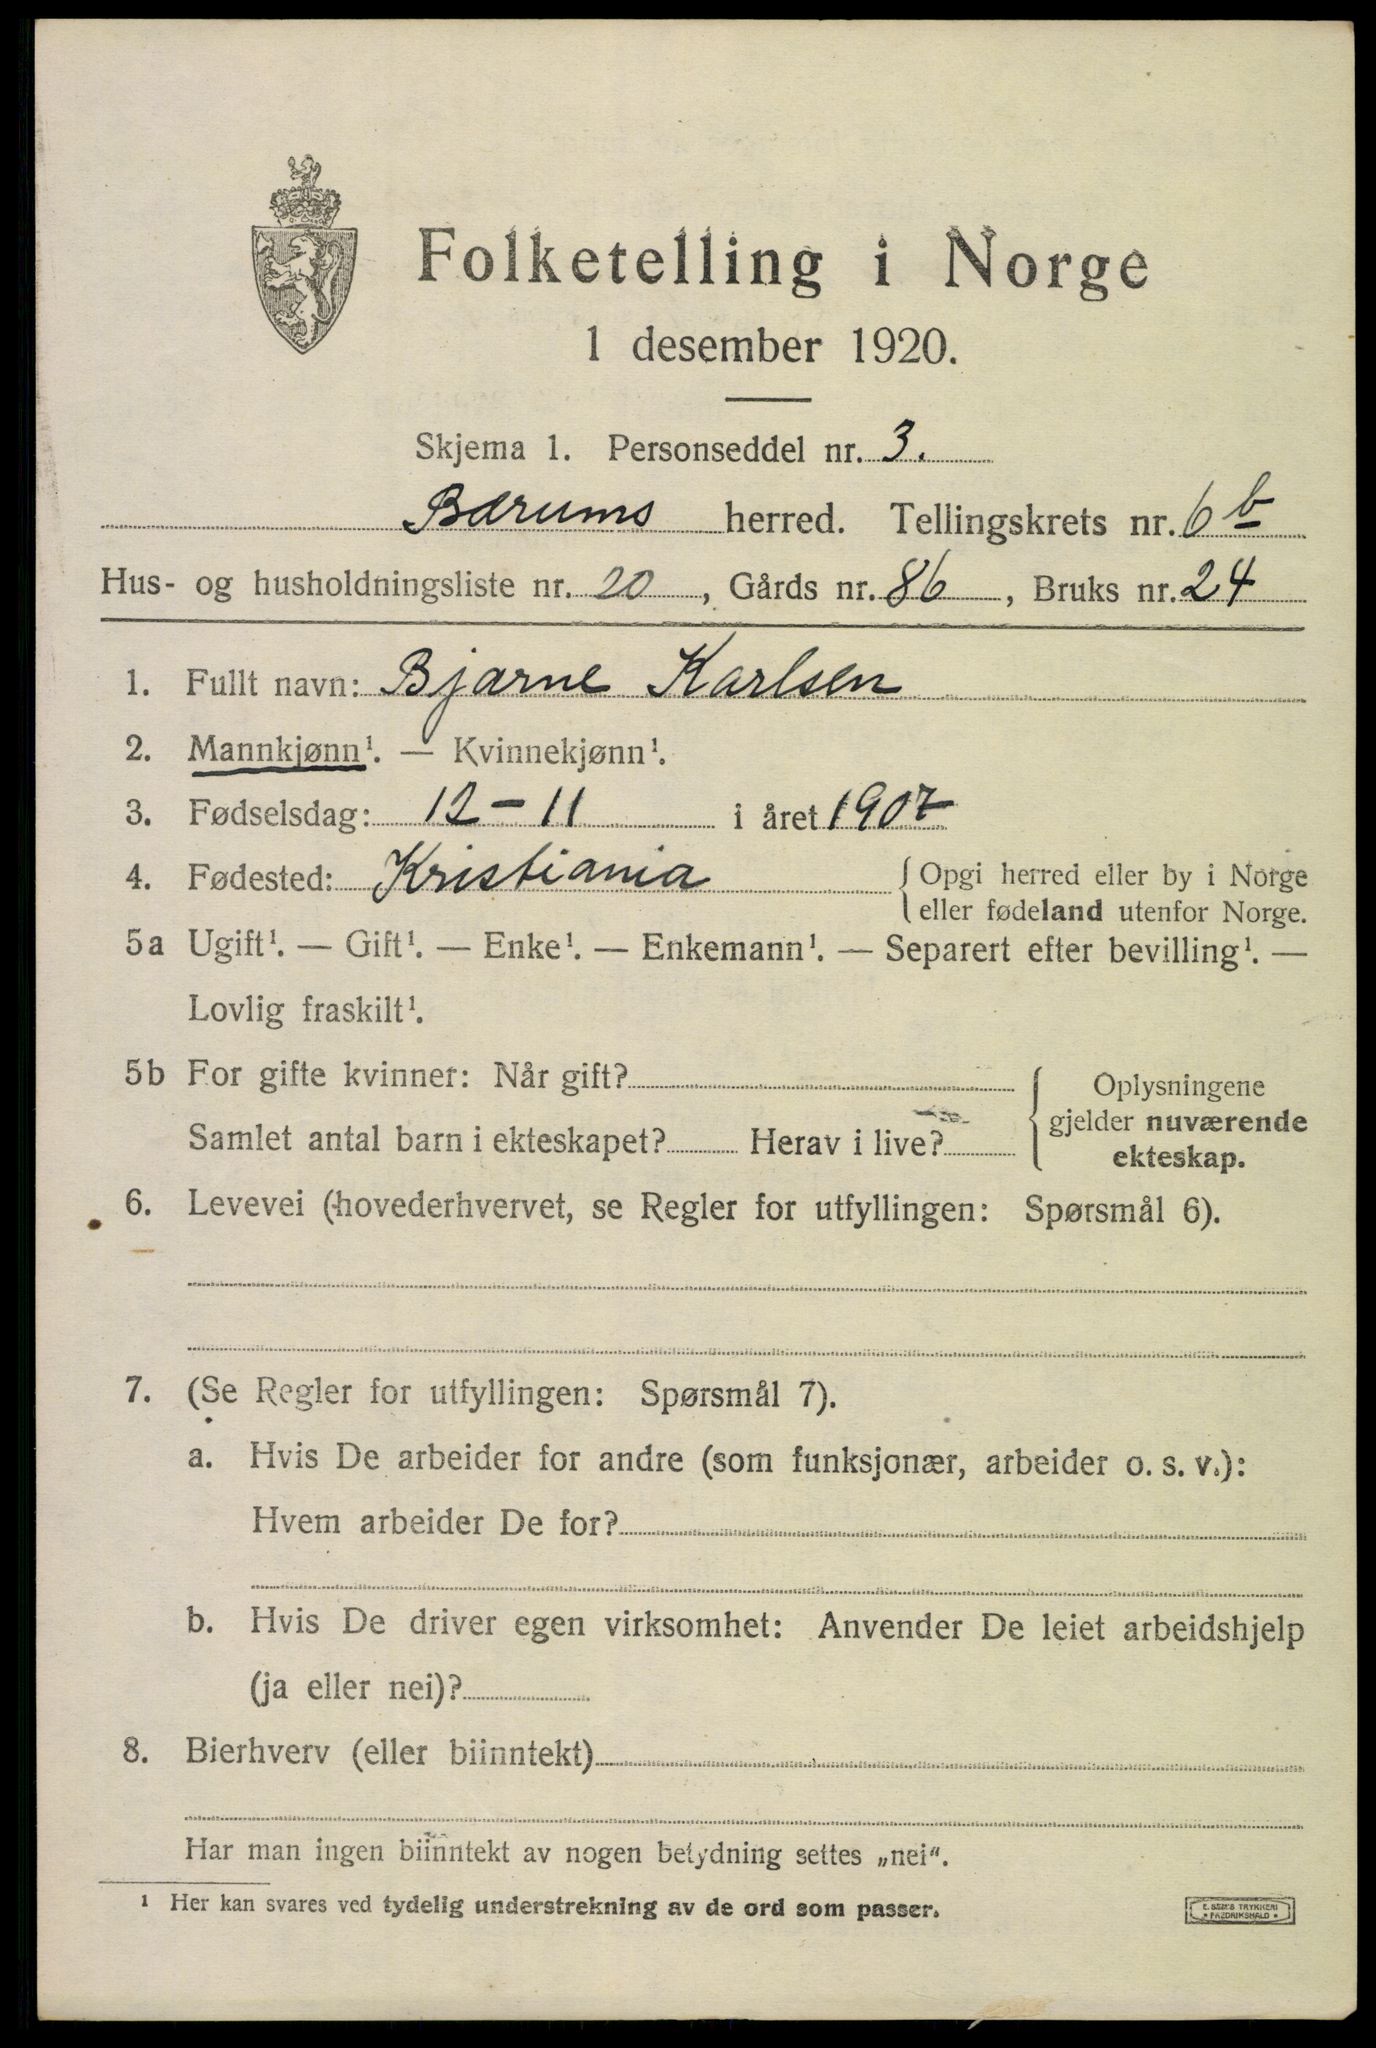 Folketelling i Norge
1 desember 1920.
Skjema 1. Personseddel nr. 3.
Bærums herred. Tellingskrets nr. 6 b
Hus- og husholdningsliste nr. 20, Gårds nr. 86, Bruks nr. 24
1. Fullt navn: Bjarne Karlsen
2. Mannkjønn¹. — Kvinnekjønn¹.
3. Fødselsdag: 12 - 11 i året 1907
4. Fødested: Kristiania { Opgi herred eller by i Norge
eller fødeland utenfor Norge.
5a Ugift¹. — Gift¹. — Enke¹. — Enkemann¹. — Separert efter bevilling¹. —
Lovlig fraskilt¹.
5b For gifte kvinner: Når gift?
Samlet antal barn i ekteskapet? Herav i live?
{ Oplysningene
gjelder nuværende
ekteskap.
6. Levevei (hovederhvervet, se Regler for utfyllingen: Spørsmål 6).
7. (Se Regler for utfyllingen: Spørsmål 7).
a. Hvis De arbeider for andre (som funksjonær, arbeider o. s. v.):
Hvem arbeider De for?
b. Hvis De driver egen virksomhet: Anvender De leiet arbeidshjelp
(ja eller nei)?
8. Bierhverv (eller biinntekt)
Har man ingen biinntekt av nogen betydning settes „nei“.
¹ Her kan svares ved tydelig understrekning av de ord som passer.
E. SEM'S TRYKKERI
• FREDRIKSHALD •